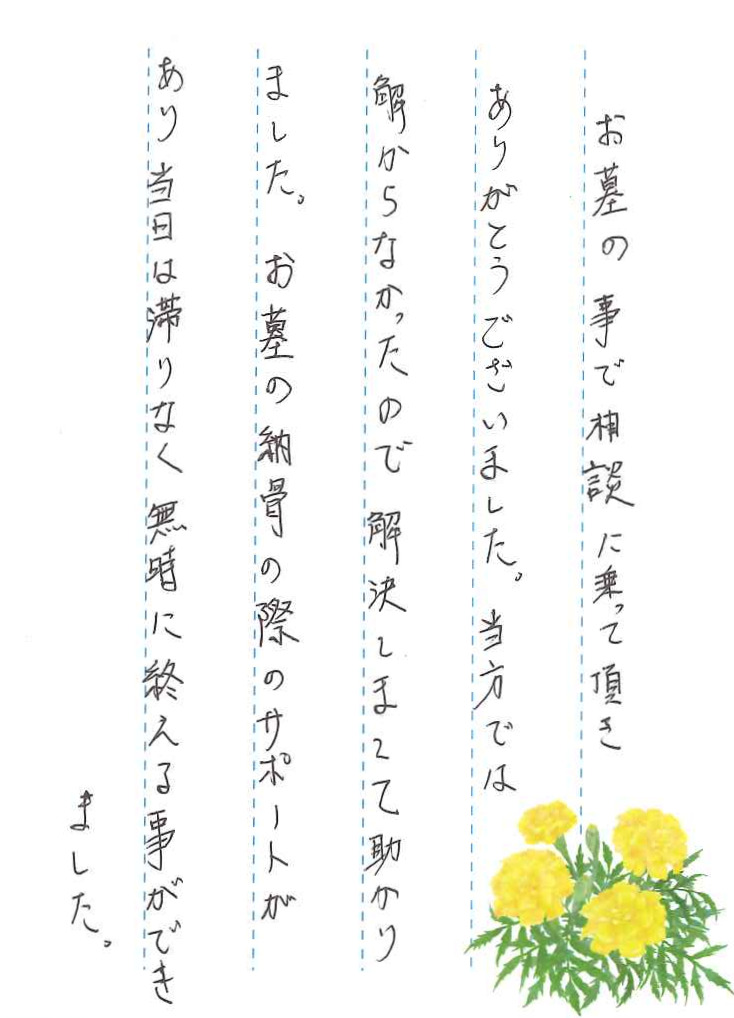 お墓の事で相談に乗って頂き
ありがとうございました。当方では
解からなかったので解決しまして助かり
ました。お墓の納骨の際のサポートが
あり当日は滞りなく無時に終える事ができ
ました。